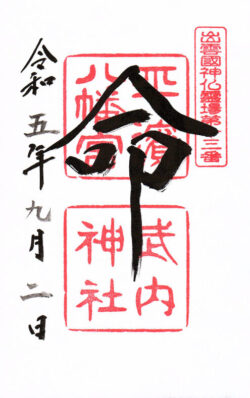 出雲國神仏霊場第十三番
平濱
八幡宮
命
武内
神社
令和五年九月二日